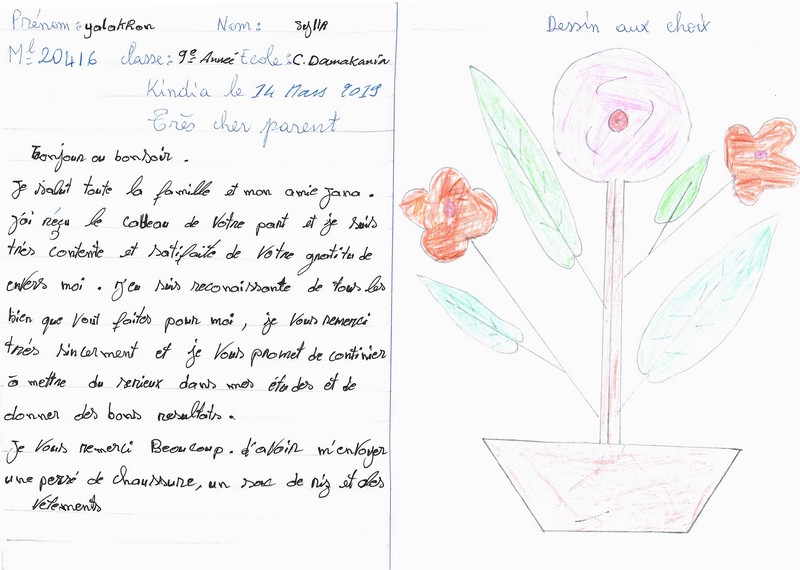 Prénom : yalakhan Nom : Sylla
Mle 20416 classe : 9e Année Ecole : C. Damakania
Kindia le 14 Mars 2019
Très cher parent
Bonjour ou bonsoir .
Je salut toute la famille et mon amie Jana .
J'ai reçu le cadeau de Votre part et je suis
très contente et satifaite de Votre gratitude
envers moi . J'en suis reconaissante de tous les
bien que Vout faites pour moi , je Vous remerci
très sincerment et je Vous promet de continier
à mettre du serieux dans mes études et de
donner des bons resultats .
Je Vous remerci Beaucoup . d'avoir m'envoyer
une persé de chaussure , un sac de riz et des
Vêtements
Dessin aux choix